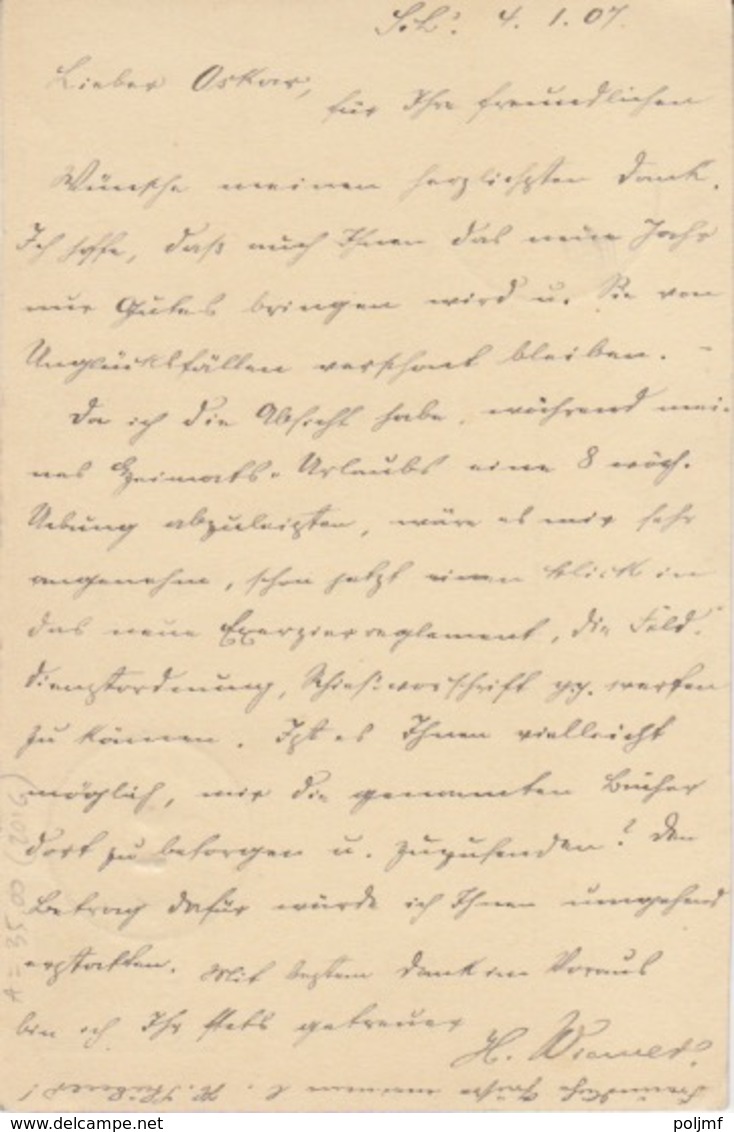 4. 1. 07.
Lieber Oskar,
für Ihre freundlichen
Wünsche meinen herzlichsten Dank.
Ich hoffe, daß auch Ihnen das neue Jahr
nur Gutes bringen wird u. Sie von
Unglücksfällen verschont bleiben. –
Da ich die Absicht habe, während mei-
nes Heimats-Urlaubs eine 8 wöch.
Uebung abzuleisten, wäre es mir sehr
angenehm, schon jetzt einen Blick in
das neue Exerzierreglement, die Feld-
dienstordnung, Schießvorschrift pp. werfen
zu können. Ist es Ihnen vielleicht
möglich, mir die genannten Bücher
dort zu besorgen u. zuzusenden? Den
Betrag dafür würde ich Ihnen umgehend
erstatten. Mit bestem Dank im Voraus
bin ich Ihr stets getreuer
H.
Freundliche Grüße
A = 35,00 (2016)
poljmf